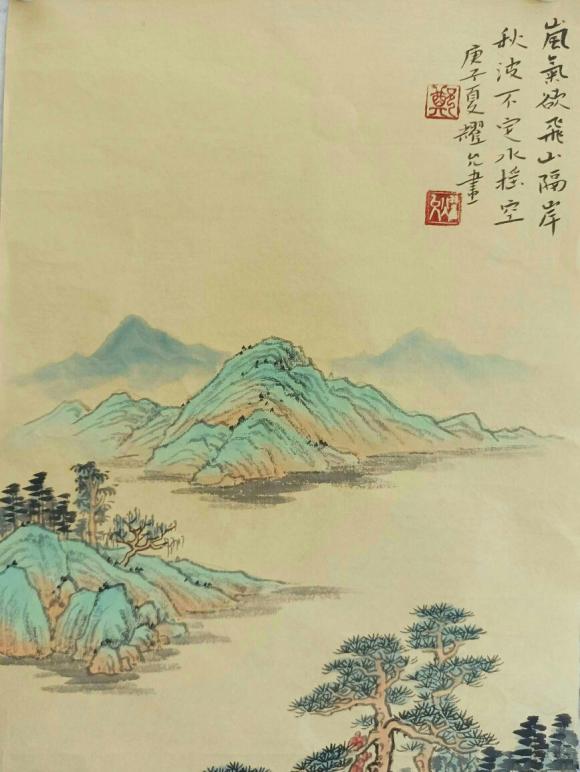 嵐氣欲飛山隔岸
秋波不定水搖空
庚子夏耀允畫
鄭